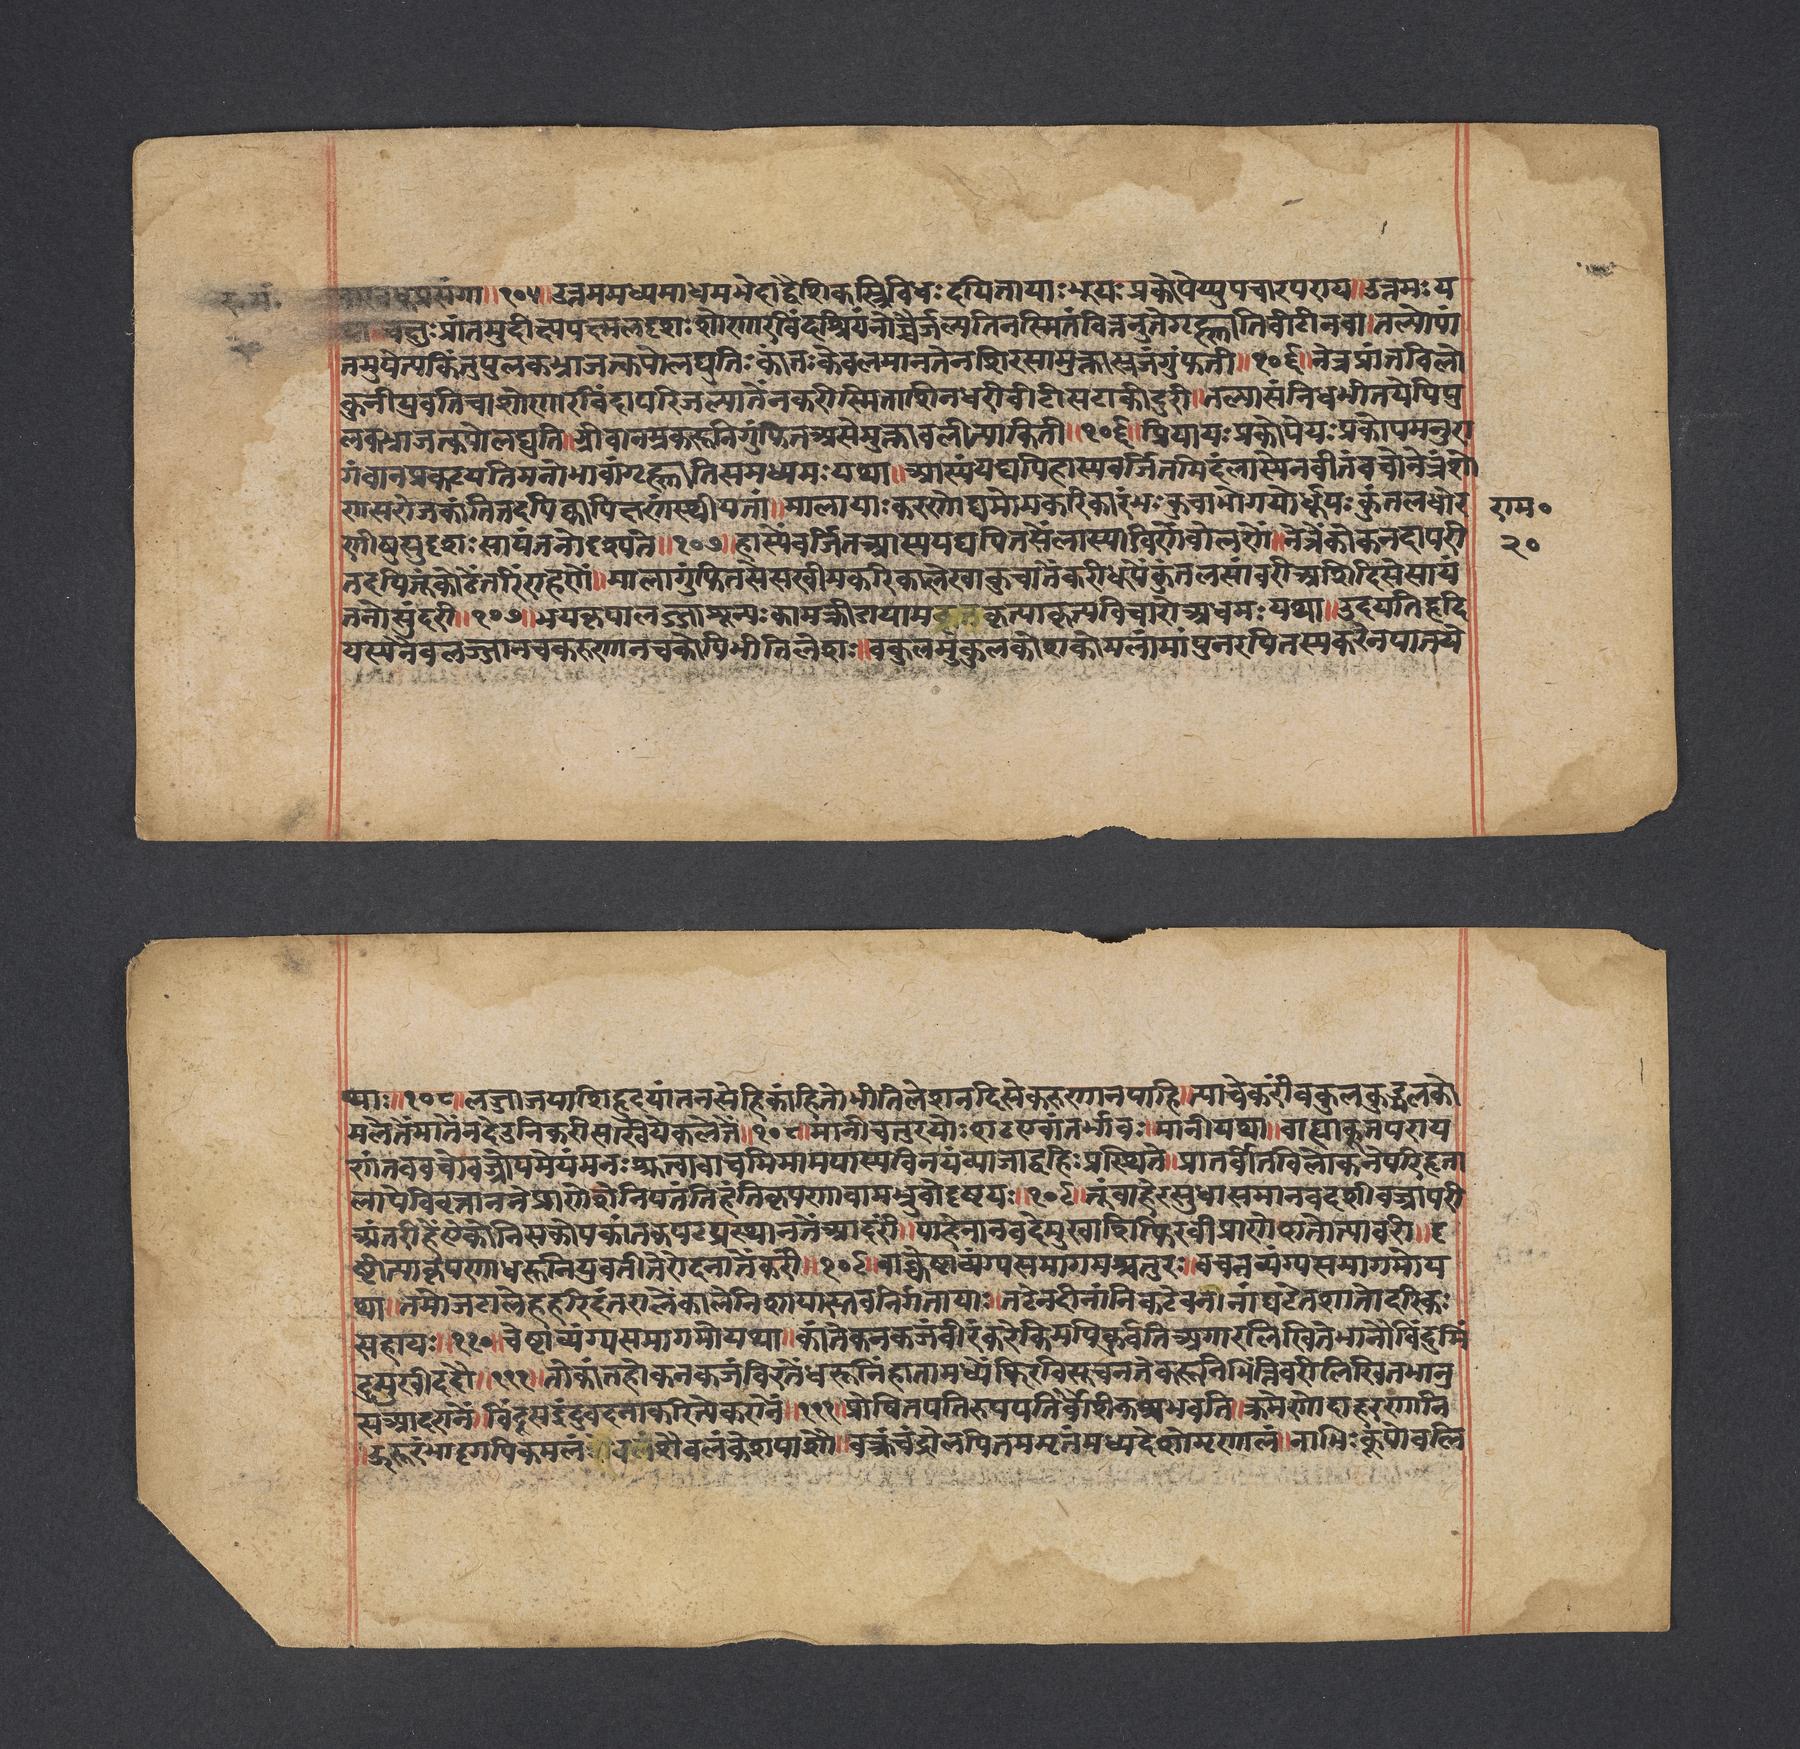 प्रसंगा॥१०५॥उत्तममध्यमाधमभेदाद्वैशिकस्त्रिविधः दयितायाः भूयः प्रकोपेप्युपचारपरायः॥उत्तमः य
चक्षुः प्रांतमुदीक्ष्यपक्ष्मलदृशः शोणारविंदश्रियंनोच्चैर्जल्पतिनस्मितंवितनुतेगृह्णातिवीटींनवा॥तल्पोपां
तमुपेत्यकिंतुपुलकभ्राजत्कपोलद्युतिः कांतः केवलमानतेनशिरसामुक्तास्रजंगुंफती॥१०६॥नेत्रप्रांतविलो
कुनीप्रवतिचाशोणारविंदापरिजल्पातेंनकरीस्मिताशिनधरीवीटीसटाकीदुरी॥तल्पासंनिधभीतयेपिपु
लकभ्राजत्कपोलद्युति॥ग्रीवानम्रकरूनिगुंफितअसेमुक्तावलीत्याकिती॥१०६॥प्रियायः प्रकोपेयः प्रकोपमनुरा
गंवानप्रकटयतिमनोभावांगृह्णातिसमध्यमः यथा॥आस्यंयद्यपिहास्यवर्जितमिदंलास्येनवीतंवचोनेत्रंशो
णसरोजकांतितदपिक्वापिक्षणंस्थीयतां॥मालायाः करणोद्यमोमकरिकारंभः कुचाभोगयोर्धूपः कुंतलधोर
णीषुसुदृशः सायंतनोदृश्यते॥१०७॥हास्यें वर्जितआस्ययद्यपितसेंलास्याविणेंबोलणें॥नेत्रेंकोकनदापरी
तदपितूकोठेंतरिंराहेणें॥मालागुंफितसेसखीमकरिकालेखाकुचातेंकरीधूपेंकुंतलसांवरीअशिदिसेसायं
तनोसुंदरी॥१०७॥भयकृपालज्जाशून्यः कामक्रीडायामकृतकृत्याकृत्यविचारोअधमः यथा॥उदयतिहृदि
यस्यनैवलज्जानचकरुणानचकोपिभीतिलेशः॥बकुलमुकुलकोशकोमलांमांपुनरपितस्यकरेनपातये
राम॰
२०
थाः॥१०८॥लज्जाजयाशिहृदयांतनसेहिकांहितोभीतिलेशनदिसेकरुणानपाहि॥त्याचेकरींबकुलकुड्मलको
मलेतेंमातेंनदेउनिकरीसखियेकलेतें॥१०८॥मानीचतुरयोः शठएवांतर्भावः॥मानीयथा॥बाह्याकूतपराय
णंतववचोवज्रोपमेयंमनः श्रुत्वावाचमिमामपास्यविनयंव्याजाद्बहिः प्रस्थिते॥प्रातर्वीतविलोकनेपरिहृता
लापेविवृत्ताननेप्राणेशेनिपतंतिहंतकृपणावामभ्रुवोदृष्टयः॥१०९॥तूंबाहेरसुधासमानवदशीवज्रापरी
अंतरीहेंऐकोनिसकोपकांतकपटप्रस्थानतेंआदरी॥पाहेनानवदेमुखाशिफिरवीप्राणेशतोत्यावरी॥दृ
ष्टीत्याकृपणाधरूनियुवतीतेरोदनातेंकरी॥१०९॥वाक्चेष्टाव्यंग्यसमागमश्चतुरः॥वचनव्यंग्यसमागमोय
था॥तमोजटालेहरिदंतरालेकालेनिशायास्तवनिर्गतायाः॥तटेनदीनांनिकटेवनीनांघटेतशातोदरिकः
सहायः॥११०॥चेष्टाव्यंग्यसमागमोयथा॥कांतेकनकजंबीरंकरेकिमपिकुर्वतिअगारलिखितेभानौबिंदुमिं
दुमुखीददौ॥१११॥तोकांतहोकनकजंबिरतेंधरूनिंहातामध्येंफिरविसूचनतेंकरूनिभिंतिवरीलिखितभानु
सआदरानेंबिंदूसइंदुवदनाकरित्येकरानें॥१११॥प्रोषितपतिरुपपतिर्वैशिकश्चभवति॥क्रमेणोदाहरणानि
ऊरूरंभादृगपिकमलंशैवलंकेशपाशौ॥वक्त्रंचंद्रोलपितममृतंमध्यदेशोमृणालं॥नाभिः कूपोवलि